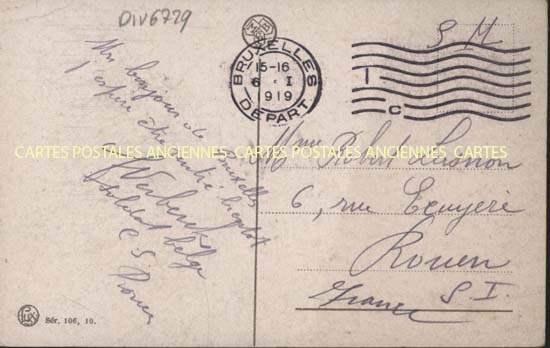 DIV6729
S M
BRUXELLES
15-16
6 I
1919
DEPART
1
C
Un bonjour de Bruxelles
J'espère
Soldat belge
C S
Rouen
CARTES POSTALES ANCIENNES CARTES POSTALES ANCIENNES CARTES POSTALES ANCIENNES
Mme Robert
6, rue Ecuyère
Rouen
S. I.
France
Sér. 106, 10.